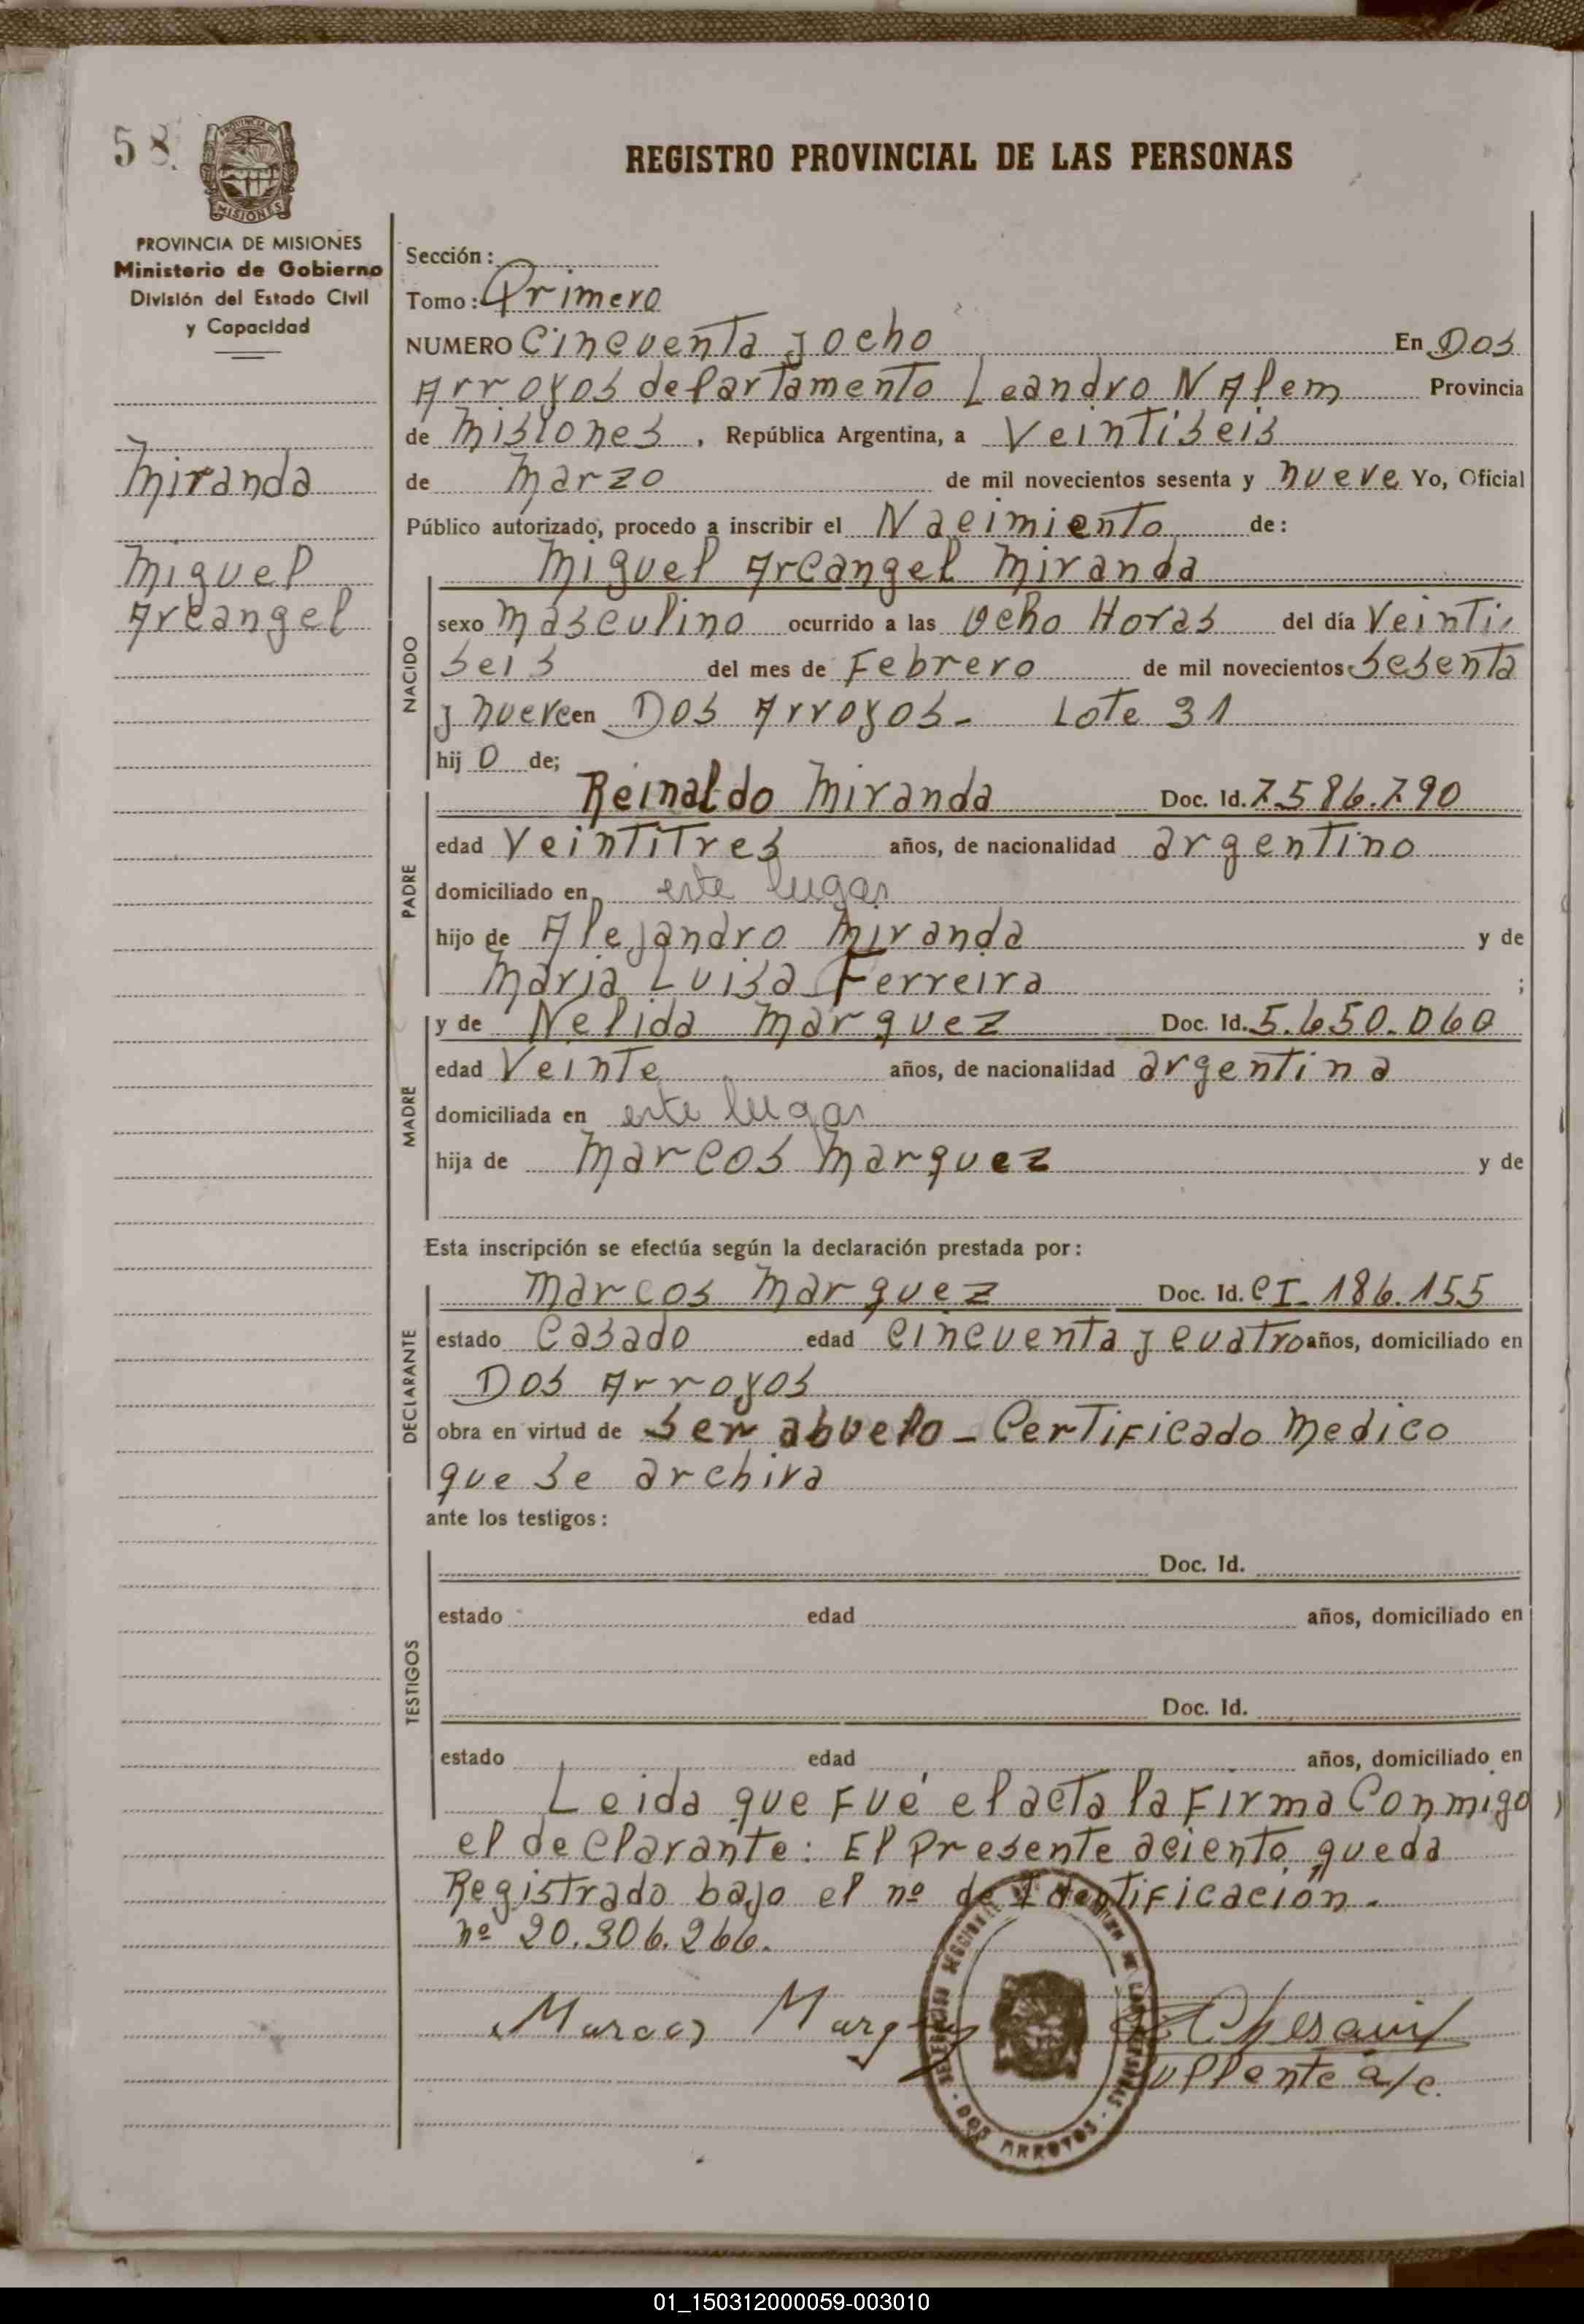 58.
PROVINCIA DE
MISIONES
PROVINCIA DE MISIONES
Ministerio de Gobierno
División del Estado Civil
y Capacidad
Miranda
Miguel
Arcangel
REGISTRO PROVINCIAL DE LAS PERSONAS
Sección:
Tomo: Primero
NUMERO Cincuenta y ocho En Dos
Arroyos departamento Leandro N Alem Provincia
de Misiones, República Argentina, a Veintiseis
de Marzo de mil novecientos sesenta y nueve Yo, Oficial
Público autorizado, procedo a inscribir el Nacimiento de:
NACIDO
Miguel Arcangel Miranda
sexo Masculino ocurrido a las Ocho Horas del día Veinti
seis del mes de Febrero de mil novecientos sesenta
y nueve en Dos Arroyos - Lote 31
hij o de;
PADRE
Reinaldo Miranda Doc. Id. 7.586.790
edad Veintitres años, de nacionalidad argentino
domiciliado en este lugar
hijo de Alejandro Miranda y de
Maria Luisa Ferreira ;
MADRE
y de Nelida Marquez Doc. Id. 5.650.060
edad Veinte años, de nacionalidad argentina
domiciliada en este lugar
hija de Marcos Marquez y de
Esta inscripción se efectúa según la declaración prestada por:
DECLARANTE
Marcos Marquez Doc. Id. CI- 186.155
estado Casado edad Cincuenta y cuatro años, domiciliado en
Dos Arroyos
obra en virtud de ser abuelo - Certificado Medico
que se archiva
ante los testigos:
TESTIGOS
Doc. Id.
estado edad años, domiciliado en
Doc. Id.
estado edad años, domiciliado en
Leida que Fué el acta la Firma Conmigo
el declarante: El Presente aciento queda
Registrado bajo el nº de Identificación.
nº 20.306.266.
Marcos Marquez
Suplente a/c.
DOS ARROYOS
01_150312000059-003010